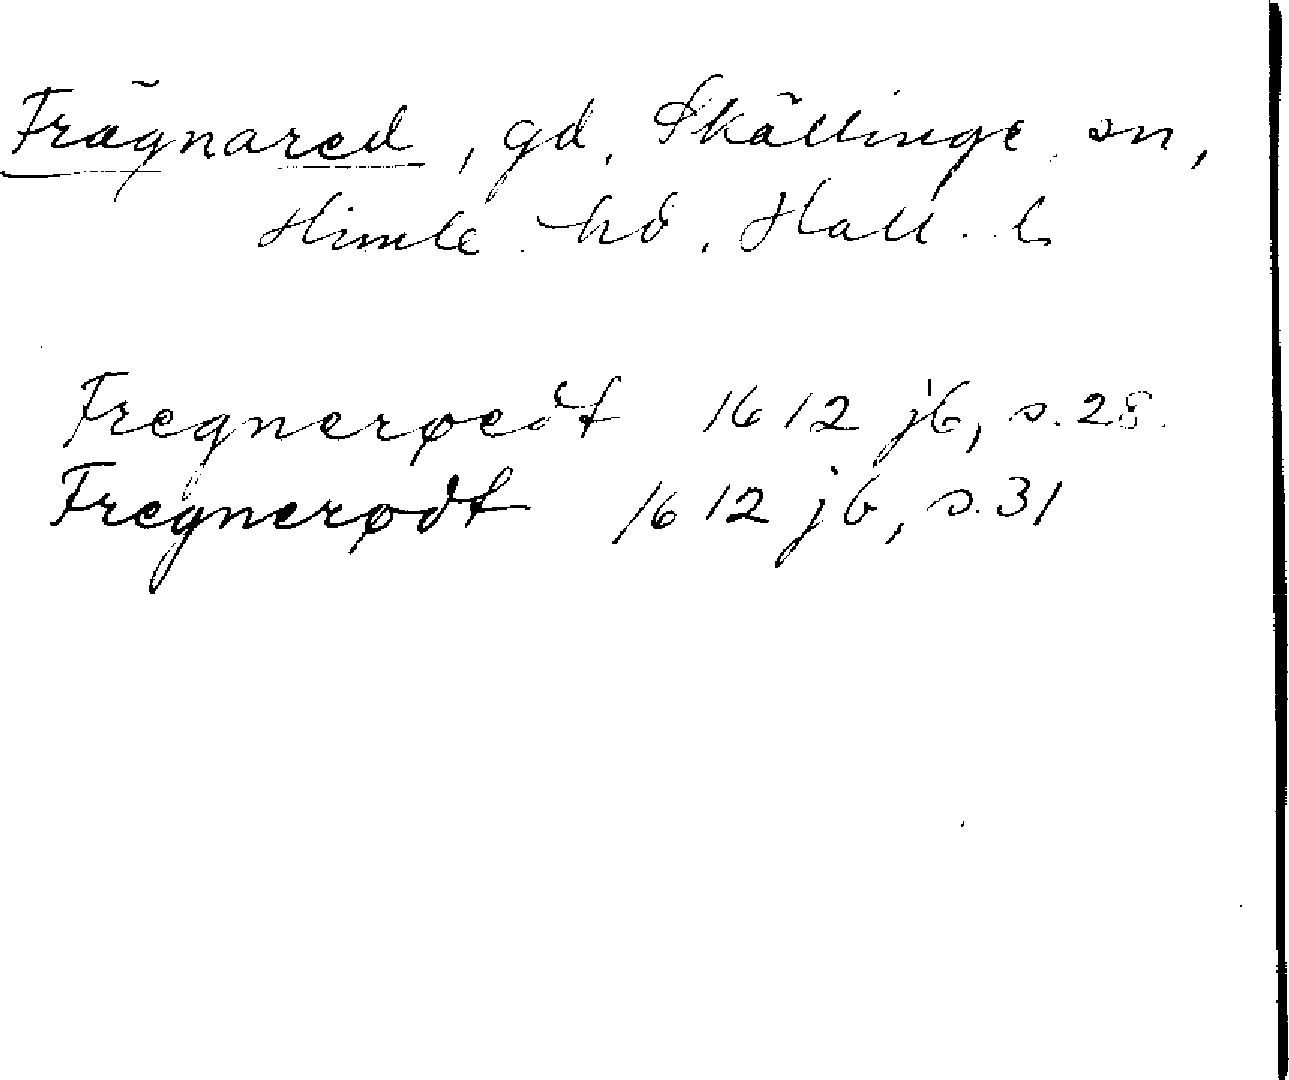 Frägnared, gd, Skällinge sn,
Himle hd. Hall. l.
Fregnerøedt 1612 jb, s. 28.
Fregnerødt 1612 jb, s. 31